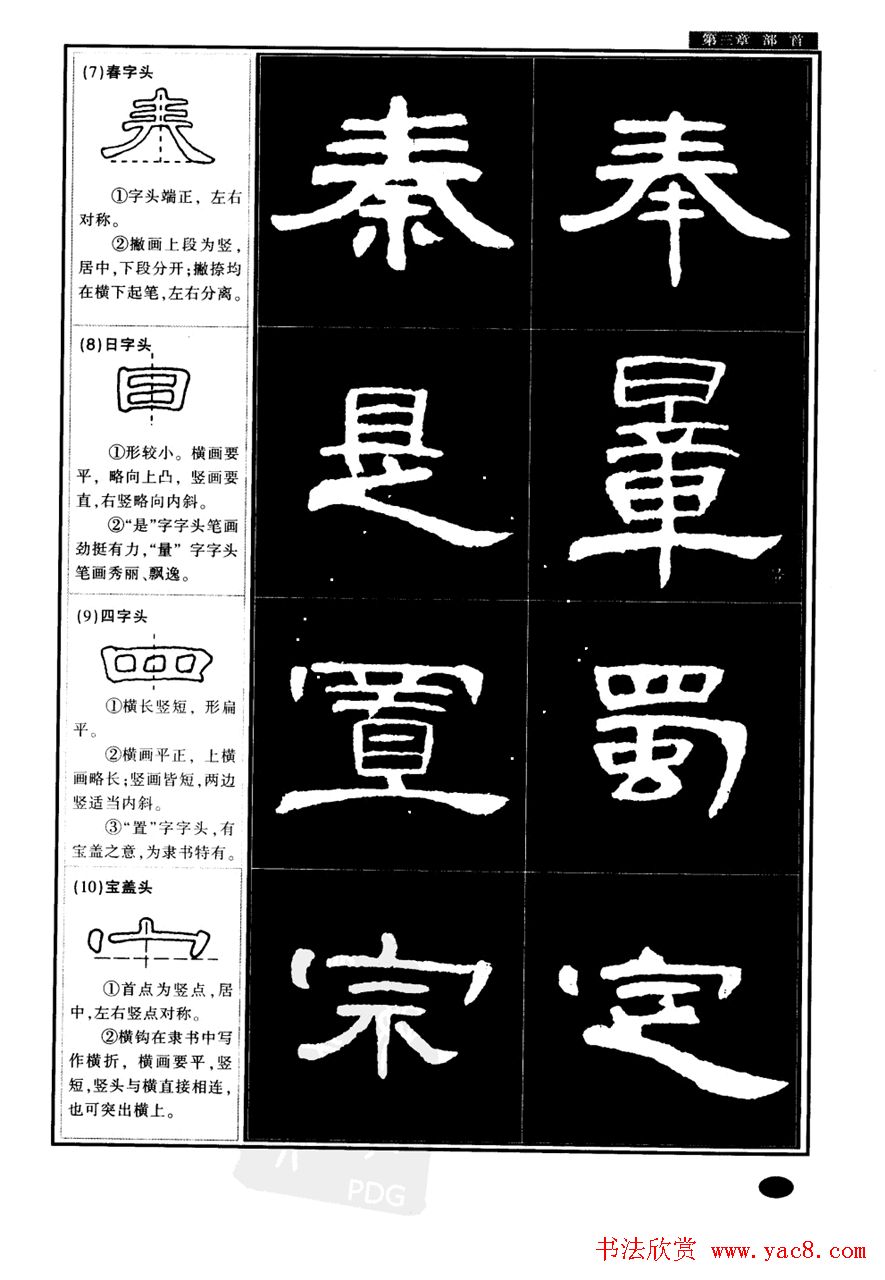 第三章 部 首
(7)春字头
①字头端正，左右
对称。
②撇画上段为竖，
居中,下段分开;撇捺均
在横下起笔,左右分离。
秦 奉
(8)日字头
①形较小。横画要
平，略向上凸，竖画要
直,右竖略向内斜。
②“是”字字头笔画
劲挺有力,“量”字字头
笔画秀丽、飘逸。
是 量
(9)四字头
①横长竖短，形扁
平。
②横画平正，上横
画略长;竖画皆短,两边
竖适当内斜。
③“置”字字头,有
宝盖之意,为隶书特有。
置 蜀
(10)宝盖头
①首点为竖点,居
中,左右竖点对称。
②横钩在隶书中写
作横折，横画要平,竖
短,竖头与横直接相连,
也可突出横上。
宗 定
PDG
书法欣赏 www.yac8.com